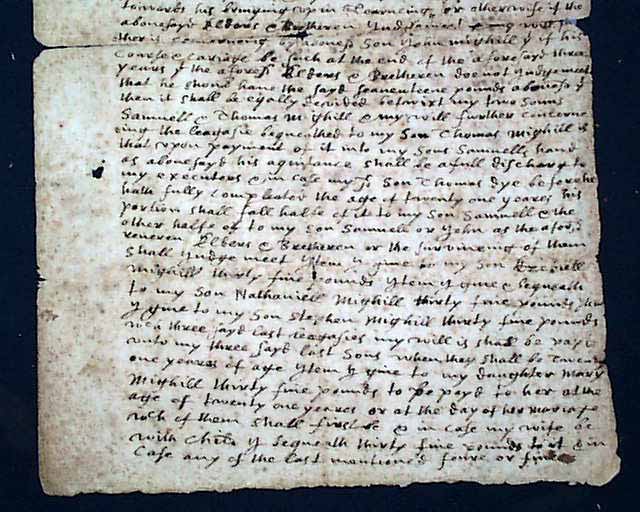 towards his bringing up in Learneing, or otherwise if the
abovesayd Elders & Bretheren Judg
other is concerning my Son John mighill y if his
Course & cariage be such at the end of the aforesayd three
years y the aforesd Elders & Bretheren doe not Judge meet
that he should have the sayd seaventeene pounds abovesd y
then it shall be eqally devided betwixt my two Sonns
Samuell & Thomas Mighill & my will further concerne
ing the leagasie beqeathed to my Son Thomas Mighill is
that upon payment of it into my Sons Samuells hand
as abovesayd his aqintance shall be a full discharg to
my executors & in case my sd Son Thomas dye before he
hath fully compleated the age of twenty one yeares his
portion shall fall halfe of it to my Son Samuell & the
other halfe or to my Son Samuell or John as the afores
reveren Elders & Bretheren or the surviveing of them
Shall Judge meet Item y give to my Son Ezekiell
Mighill thirty five pounds Item y give & beqeath
to my Son Nathaniell Mighill thirty five pounds Item
y give to my Son Stephen Mighill thirty five pounds
wch three sayd last leagasies my will is shall be payd
unto my three sayd last Sons when they shall be twenty
one yeares of age Item y give to my daughter Mary
Mighill thirty five pounds to be payd to her at the
age of twenty one yeares or at the day of her mariage
wch of them shall first be & in case my wife be
with Child y beqeath thirty five pounds to it & in
Case any of the last mentioned foure or five